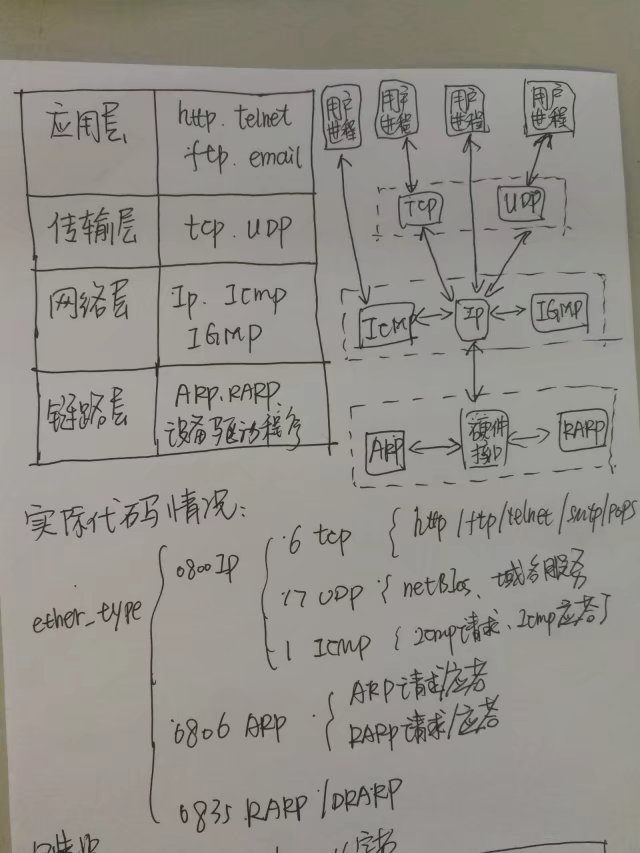 应用层
http. telnet
ftp. email
传输层
tcp. UDP
网络层
Ip. Icmp
IGMP
链路层
ARP. RARP.
设备驱动程序
用户
进程
用户
进程
用户
进程
用户
进程
TCP
UDP
Icmp
Ip
IGMP
ARP
硬件
接口
RARP
实际代码情况:
ether_type
0800 Ip
6 tcp { http /ftp/telnet /smtp/pops
17 UDP { netBIos、域名服务
1 Icmp { Icmp请求、Icmp应答
0806 ARP
ARP请求/应答
RARP请求/应答
0835 RARP /DRARP